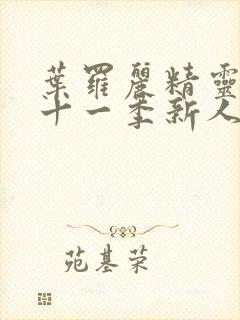 葉羅麗精靈
十一季新人
苑基荣